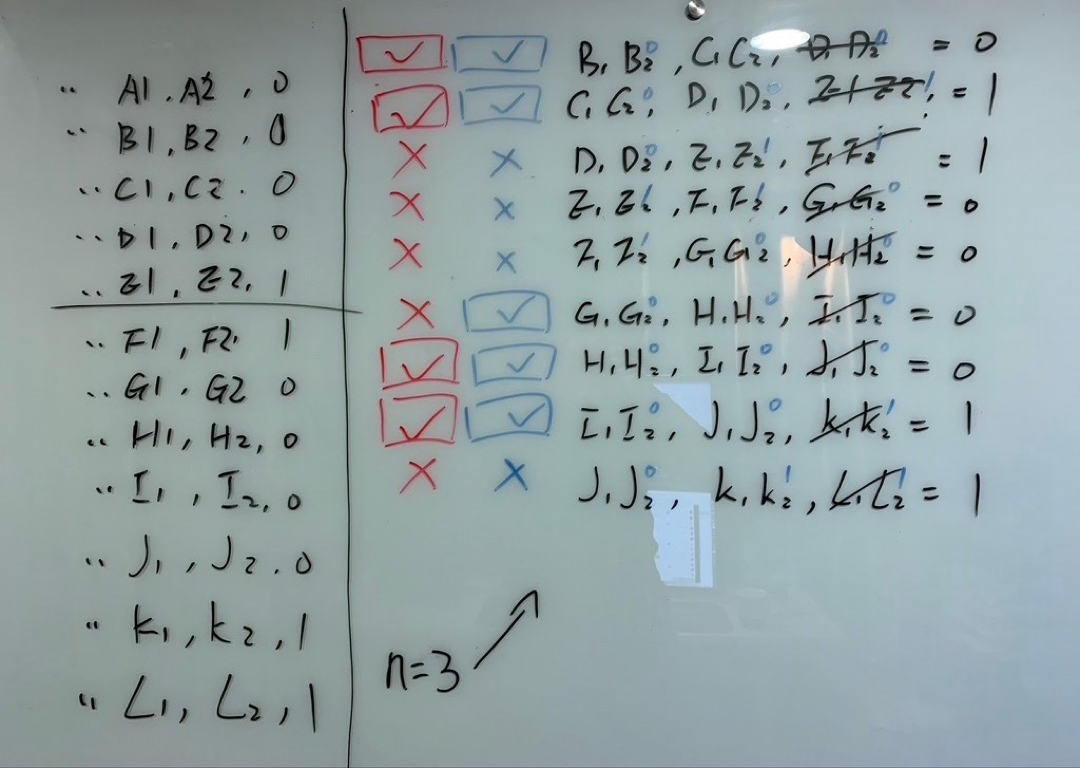 " A1, A2, 0
" B1, B2, 0
" C1, C2. 0
" D1, D2, 0
" Z1, Z2, 1
" F1, F2. 1
" G1. G2 0
" H1, H2, 0
" I1, I2, 0
" J1, J2, 0
" K1, K2, 1
" L1, L2, 1
B1 B2 0, C1 C2, D1 D2 0 = 0
C1 C2 0, D1 D2 0, Z1 Z2 1, = 1
D1 D2 0, Z1 Z2 1, F1 F2 1 = 1
Z1 Z2 1, F1 F2 1, G1 G2 0 = 0
Z1 Z2 1, G1 G2 0, H1 H2 0 = 0
G1 G2 0, H1 H2 0, I1 I2 0 = 0
H1 H2 0, I1 I2 0, J1 J2 0 = 0
I1 I2 0, J1 J2 0, K1 K2 1 = 1
J1 J2 0, K1 K2 1, L1 L2 1 = 1
n=3